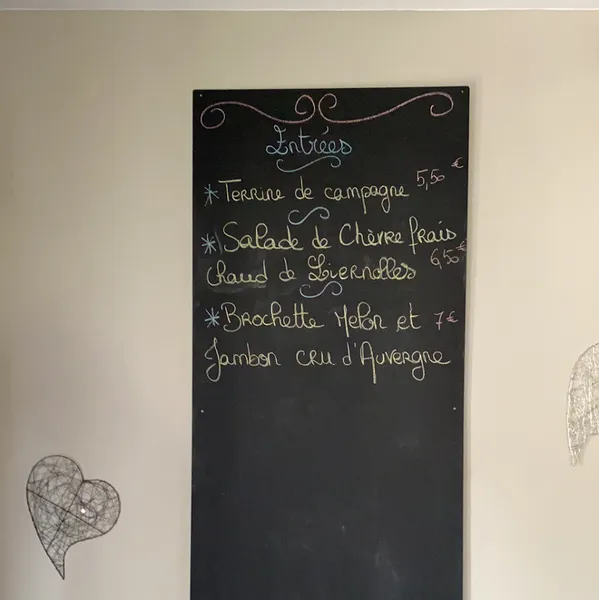 Entrées
* Terrine de campagne 5,50 €
* Salade de Chèvre frais
Chaud de Liernolles 6,50 €
* Brochette Melon et 7 €
Jambon cru d'Auvergne